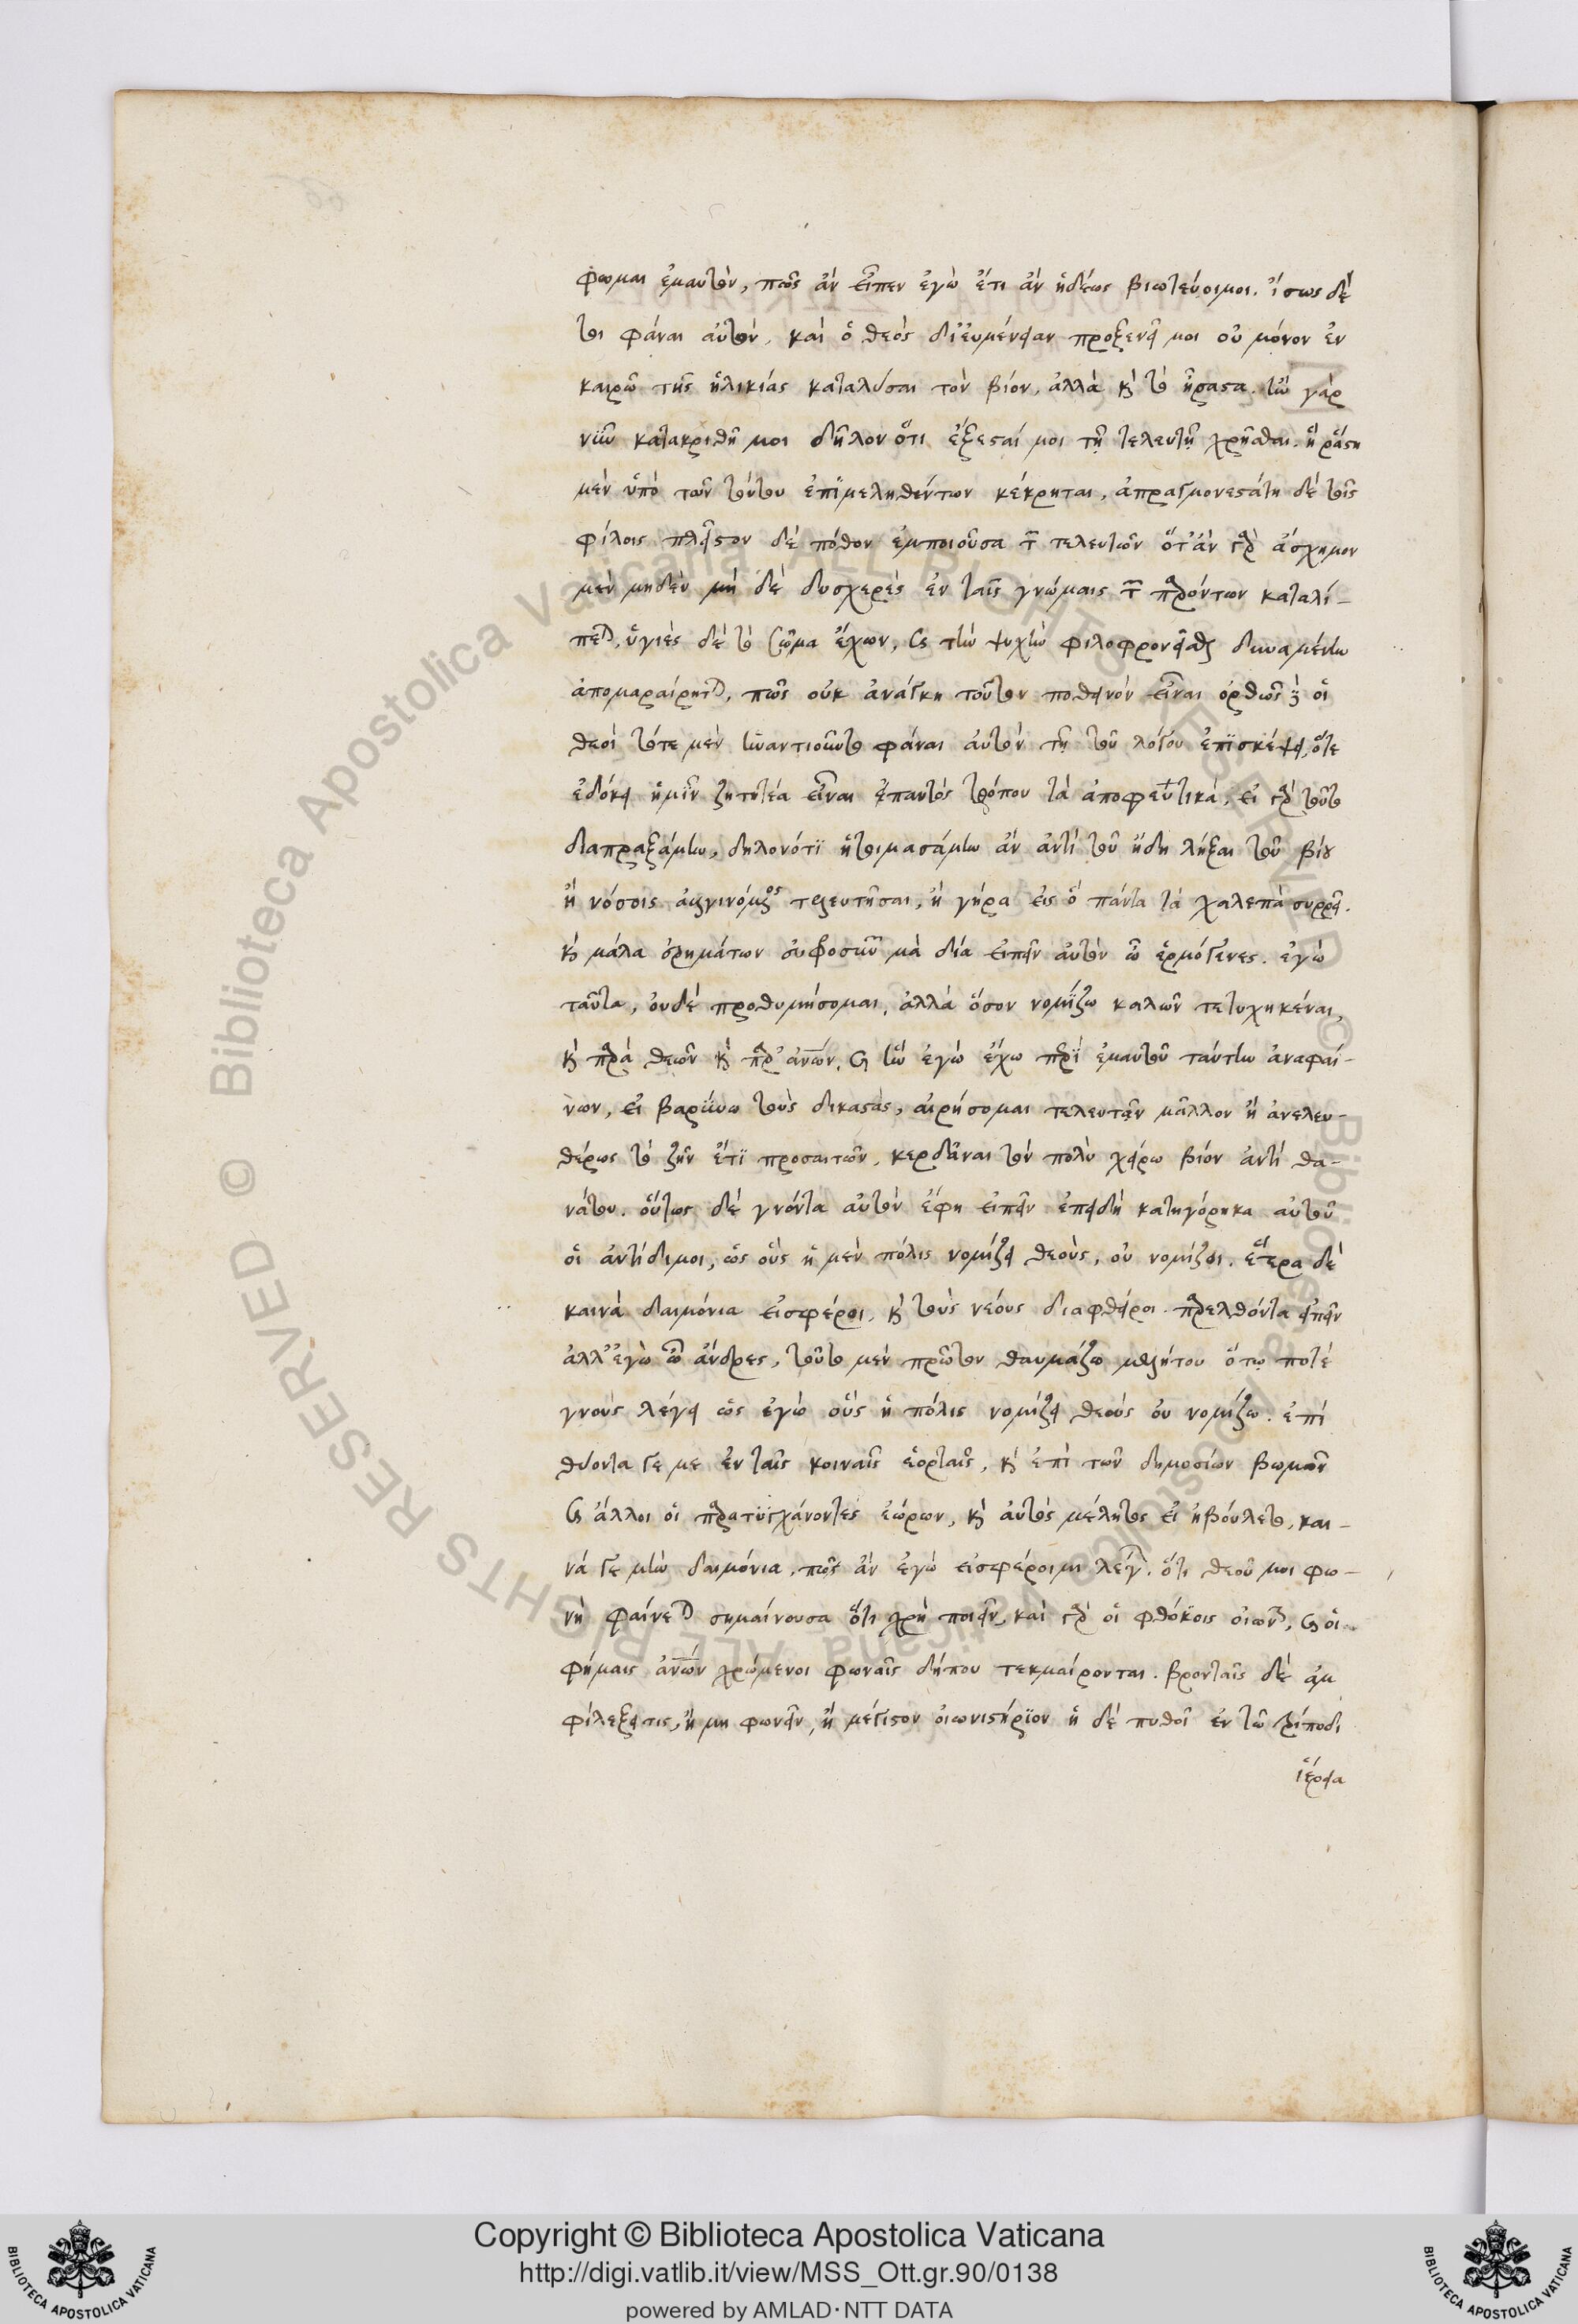 φωμαι ἐμαυτὸν, πῶς ἂν εἶπεν ἐγὼ ἔτι ἂν ἡδέως βιωτεύοιμοι. ἴσως δέ
τοι φάναι αὐτὸν, καὶ ὁ θεὸς δι' εὐμένειαν προξενεῖ μοι οὐ μόνον ἐν
καιρῷ τῆς ἡλικίας καταλύσαι τὸν βίον, ἀλλὰ κ τὸ ῥᾷστα. ἢν γὰρ
νῦν κατακριθῇ μοι δῆλον ὅτι ἐξέσται μοι τῇ τελευτῇ χρῆσθαι. ἣ ῥᾴστη
μὲν ὑπὸ τῶν τούτου ἐπιμεληθέντων κέκρηται, ἀπραγμονεστάτη δὲ τοῖς
φίλοις πλεῖστον δὲ πόθον ἐμποιοῦσα τῶν τελευτῶν ὅτ' ἂν γὰρ ἄσχημον
μὲν μηδὲν μὴ δὲ δυσχερὲς ἐν ταῖς γνώμαις τῶν παρόντων καταλί-
πεται, ὑγιὲς δὲ τὸ σῶμα ἔχων, καὶ τὴν ψυχὴν φιλοφρονεῖσθαι δυναμένην
ἀπομαραίρηται, πῶς οὐκ ἀνάγκη τοῦτον ποθεινὸν εἶναι ὀρθῶς δὲ οἱ
θεοὶ τότε μὲν ἠναντιοῦντο φάναι αὐτὸν τῇ τοῦ λόγου ἐπισκέψει, ὅτε
ἐδόκει ἡμῖν ζητητέα εἶναι ἐκπαντὸς τρόπου τὰ ἀποφευτικά, εἰ γὰρ τοῦτο
διαπραξάμην, δηλονότι ἡτοιμασάμην ἂν ἀντὶ τοῦ ἤδη λῆξαι τοῦ βίου
ἢ νόσοις ἀλγινόμενος τελευτῆσαι, ἢ γήρα εἰς ὃ πάντα τὰ χαλεπὰ συρρεῖ.
κ μάλα ἐρημάτων εὐφροσυνῶν μὰ δία εἰπεῖν αὐτὸν ὦ ἑρμόγενες. ἐγὼ
ταῦτα, οὐδὲ προθυμήσομαι, ἀλλὰ ὅσον νομίζω καλῶν τετυχηκέναι,
κ παρὰ θεῶν κ παρ' ἀνων, καὶ ἣν ἐγὼ ἔχω περὶ ἐμαυτοῦ ταύτην ἀναφαί-
νων, εἰ βαρύνω τοὺς δικαστὰς, αἱρήσομαι τελευτᾶν μᾶλλον ἢ ἀνελευ-
θέρως τὸ ζῆν ἔτι προσαιτῶν, κερδᾶναι τὸν πολὺ χείρω βίον ἀντὶ θα-
νάτου. οὕτως δὲ γνόντα αὐτὸν ἔφη εἰπεῖν ἐπειδὴ κατηγόρηκα αὐτοῦ
οἱ ἀντίδιμοι, ὡς οὓς ἡ μὲν πόλις νομίζει θεοὺς, οὐ νομίζοι. ἕτερα δὲ
καινὰ δαιμόνια εἰσφέροι, κ τοὺς νέους διαφθείροι. παρελθόντα εἰπεῖν
ἀλλ' ἐγὼ ὦ ἄνδρες, τοῦτο μὲν πρῶτον θαυμάζω μελήτου ὅτω ποτέ
γνοὺς λέγει ὡς ἐγὼ οὓς ἡ πόλις νομίζει θεοὺς οὐ νομίζω. ἐπὶ
θύοντα γε με ἐν ταῖς κοιναῖς ἑορταῖς, κ ἐπὶ τῶν δημοσίων βωμῶν
καὶ ἄλλοι οἱ παρατυγχάνοντες ἑώρων, κ αὐτὸς μέλητος εἰ ἠβούλετο, και-
νά γε μὴν δαιμόνια, πῶς ἂν ἐγὼ εἰσφέροιμι λέγων. ὅτι θεοῦ μοι φω-
νὴ φαίνεται σημαίνουσα ὅτι χρὴ ποιεῖν, καὶ γὰρ οἱ φθόκοις οἰων, καὶ οἱ
φήμαις ἀνων χρώμενοι φωναῖς δήπου τεκμαίρονται. βρονταῖς δὲ ἀμ
φιλέξει τις, ἢ μη φωνεῖν, ἢ μέγιστον οἰωνιστήριον ἡ δὲ πυθοῖ ἐν τῷ τρίποδι
ἱέρεια
Copyright © Biblioteca Apostolica Vaticana
http://digi.vatlib.it/view/MSS_Ott.gr.90/0138
powered by AMLAD · NTT DATA